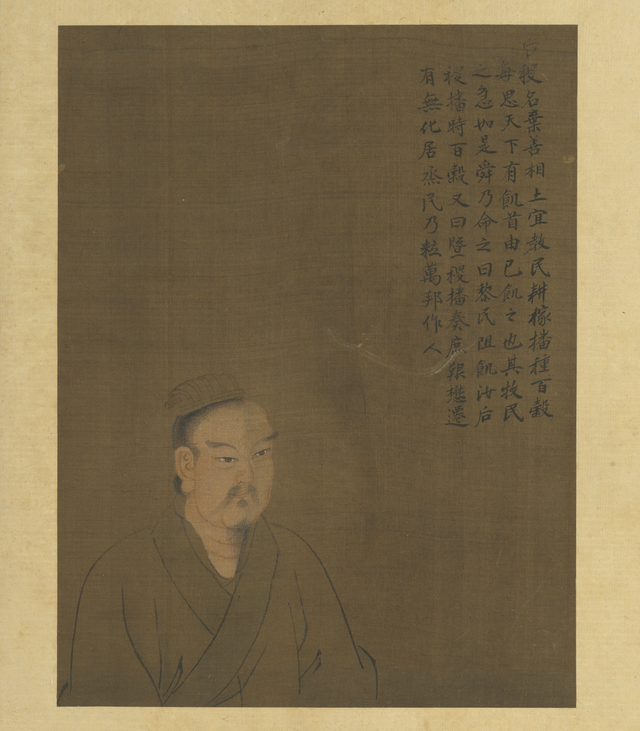 后稷名棄善相土宜教民耕稼播種百穀
每思天下有飢首由已飢之也其牧民
之急如是舜乃命之曰黎民阻飢汝后
稷播時百穀又曰曁稷播奏庶艱懋遷
有無化居烝民乃粒萬邦作人